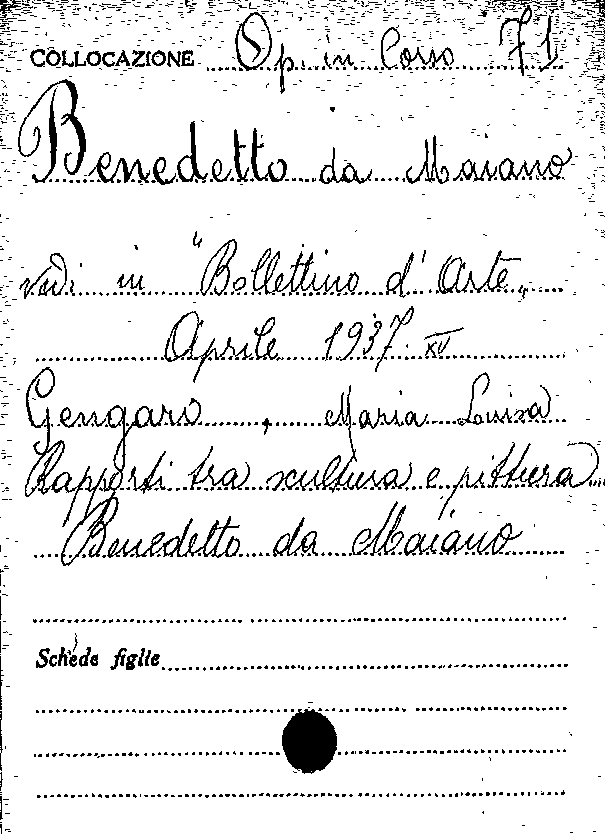 COLLOCAZIONE Op. in Corso 71
Benedetto da Maiano
vedi in "Bollettino d'Arte"
Aprile 1937. XV
Gengaro, Maria Luisa
Rapporti tra scultura e pittura
Benedetto da Maiano
Schede figlie